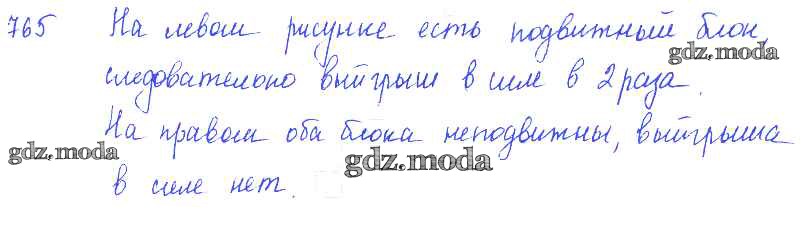 765 На левом рисунке есть подвижный блок,
gdz.moda
следовательно выигрыш в силе в 2 раза.
На правом оба блока неподвижны, выигрыша
gdz.moda
gdz.moda
в силе нет.